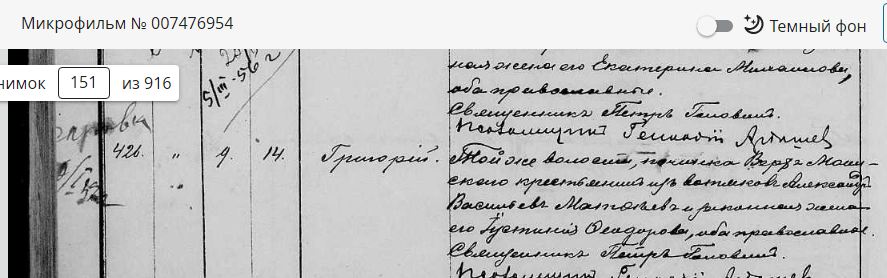 Микрофильм № 007476954
Темный фон
нимок 151 из 916
5/III-56 г
ная жена его Екатерина Михаилова,
оба православные.
Священник Петръ
Псаломщик Геннадій
справка
426. " 9. 14. Григорій. Той же волости, починка Верхъ
крестьянинъ изъ вотяковъ Александръ
Васильевъ Матвѣевъ и законная жена
его Іустинія Ѳеодорова, оба православные.
Священникъ Петръ
Псаломщик Геннадій